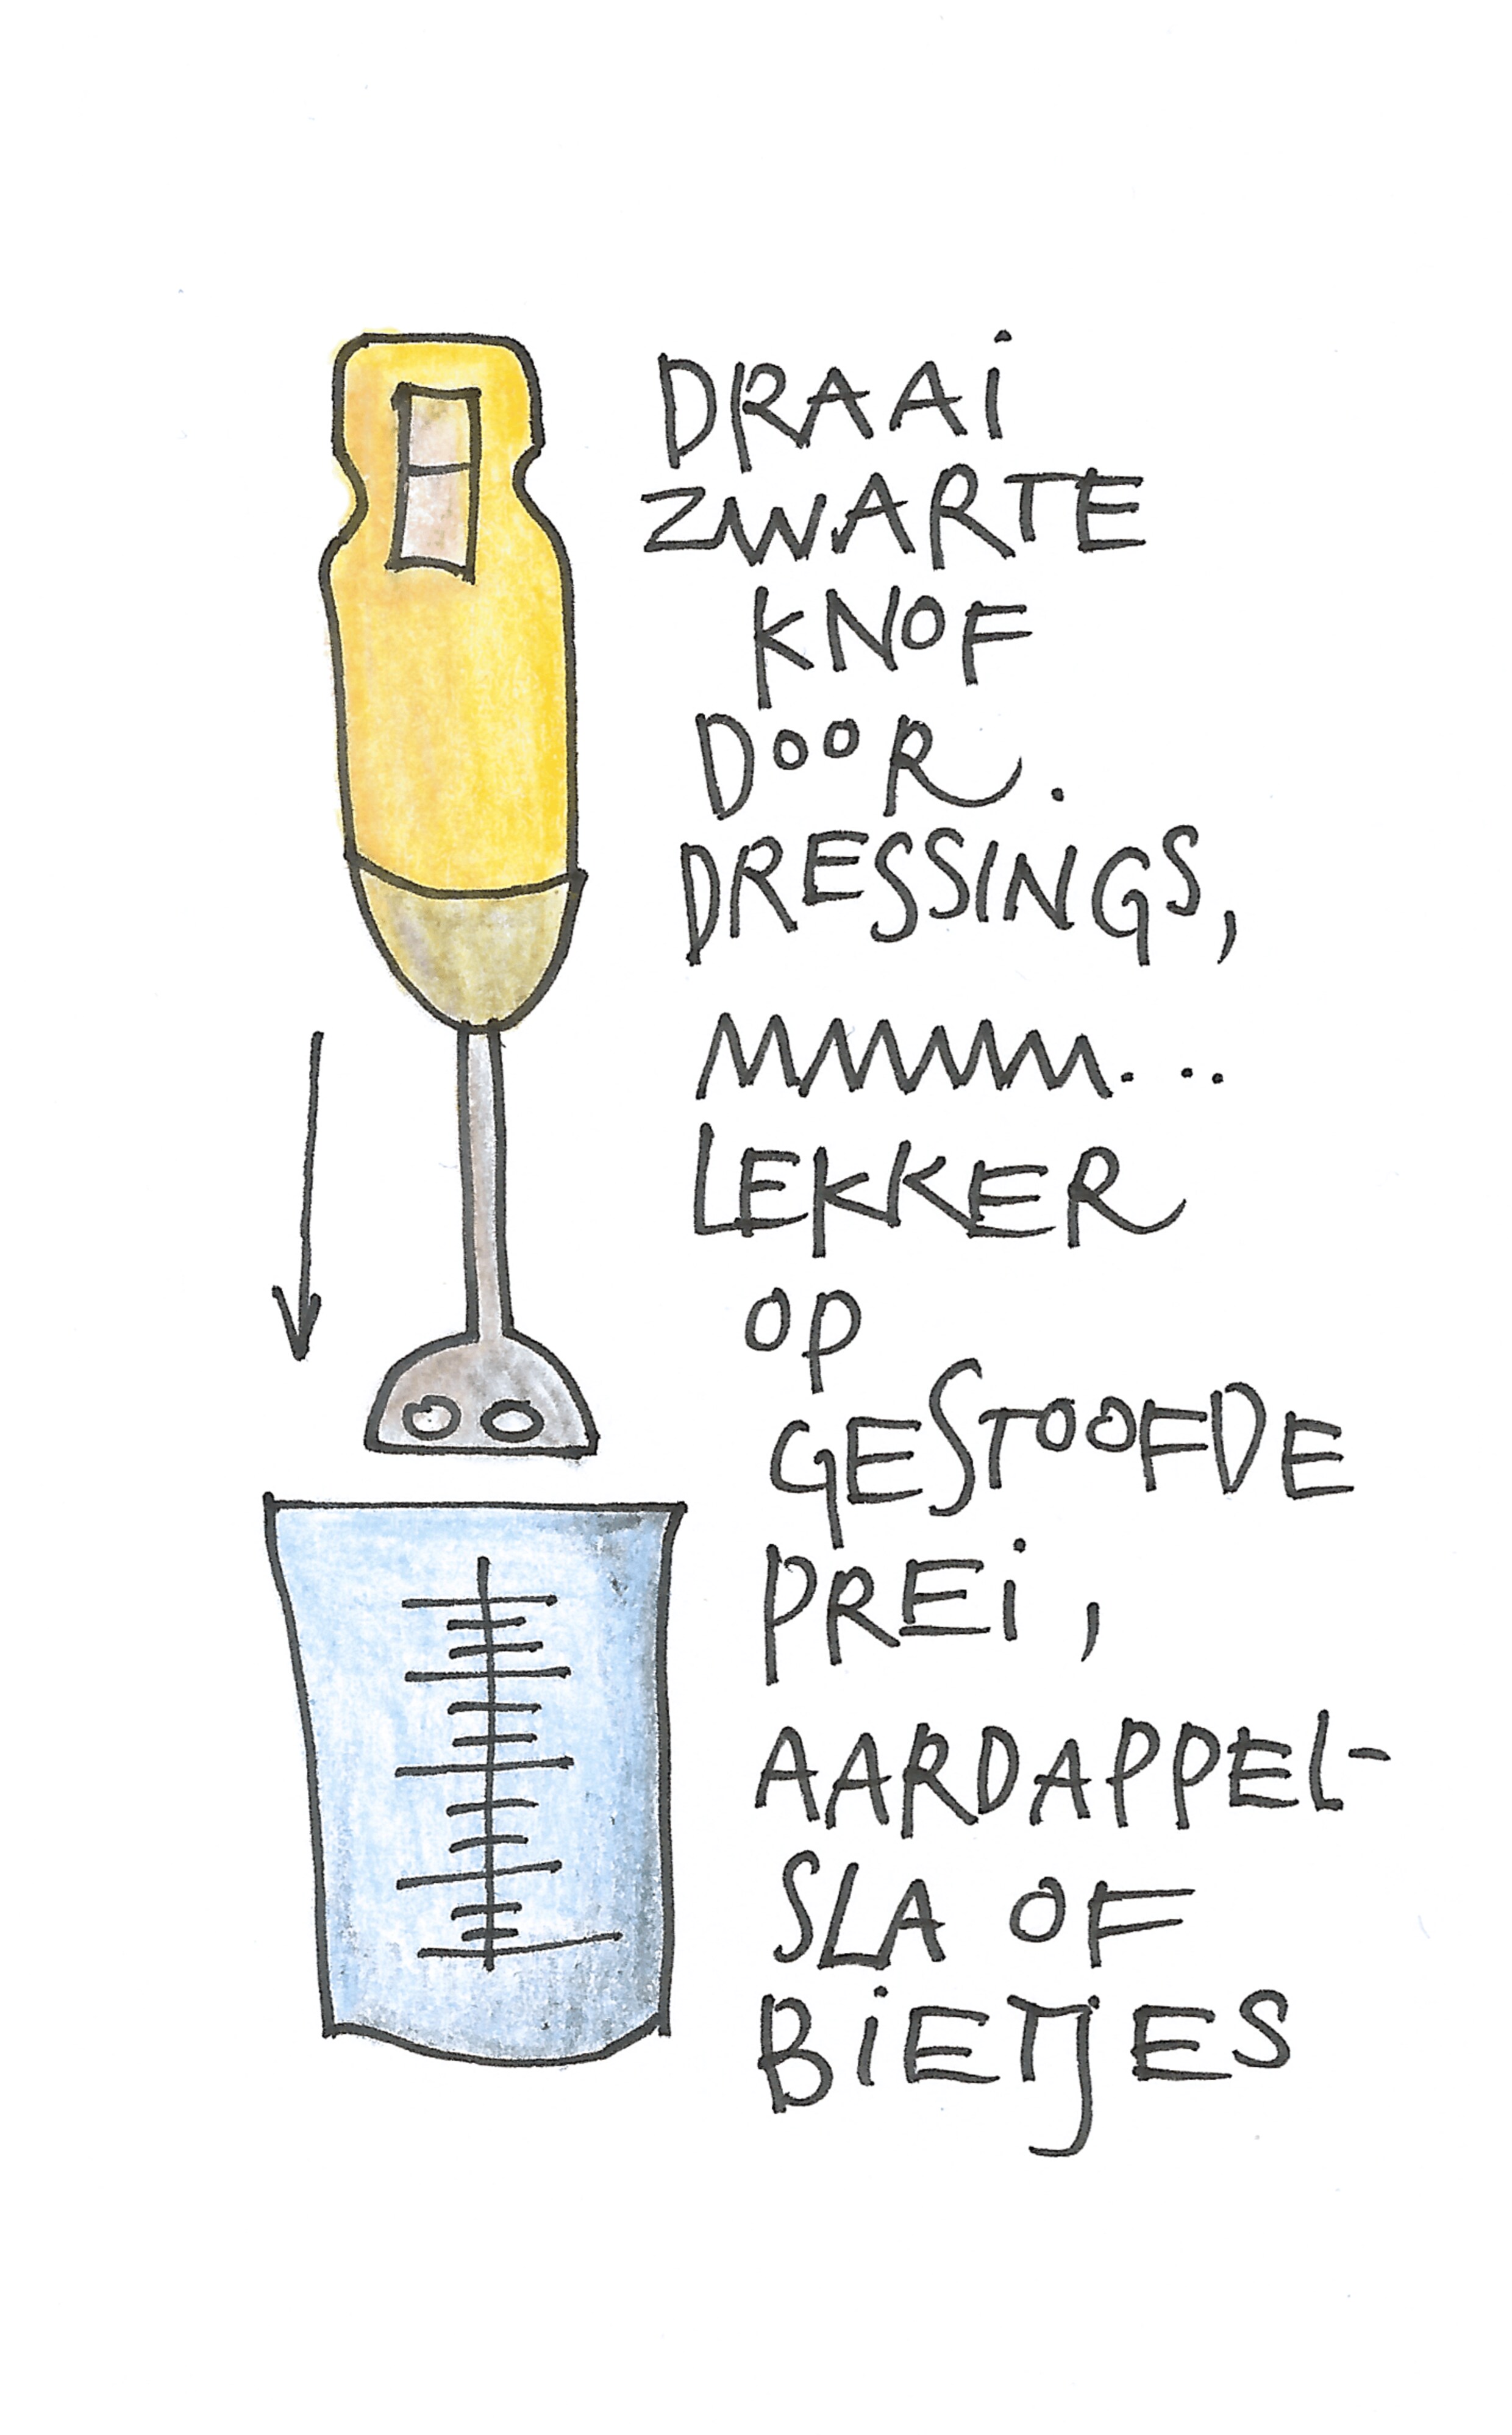 DRAAi
ZWARTE
KNOF
DOOR.
DRESSINGS,
MMMMM...
LEKKER
OP
GESTOOFDE
PREi,
AARDAPPEL-
SLA OF
BiETJES